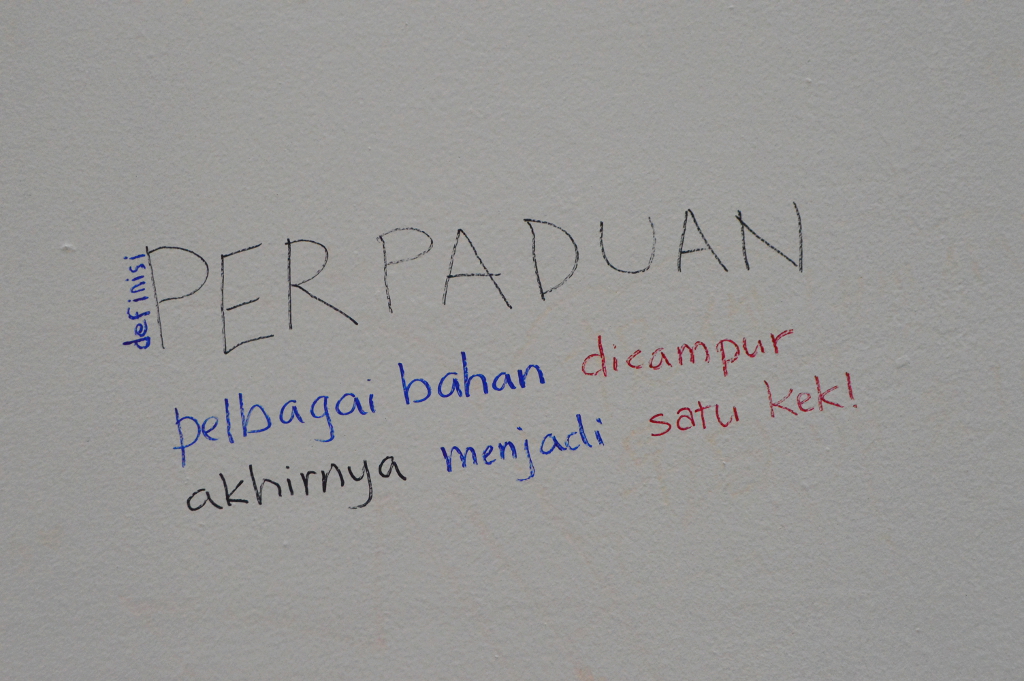 definisi
PERPADUAN
pelbagai bahan dicampur
akhirnya menjadi satu kek!